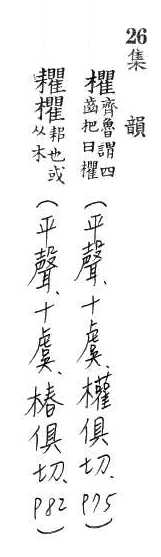 26 集韻
欋 齊魯謂四齒把曰欋(平聲、十虞、權俱切、P75)
欋 邦也或从木(平聲、十虞、椿俱切、P82)